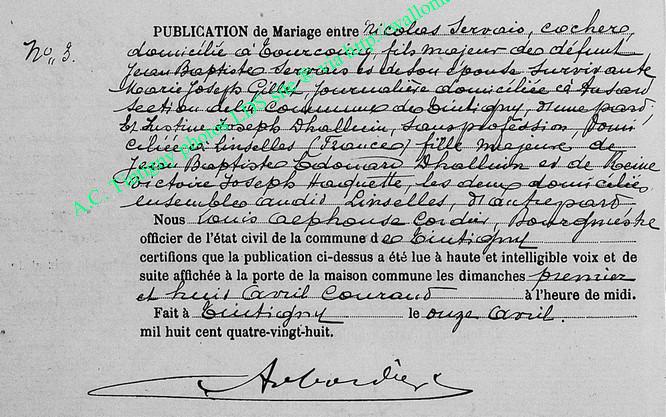 PUBLICATION de Mariage entre Nicolas Servais, cocher,
No. 3. domiciliée à Tourcoing, fils majeur de défunt
Jean Baptiste Servais et de son épouse survivante
Marie Joseph Gillet, journalière domiciliée à Ansart
section de la Commune de Tintigny, d'une part
Et Justine Joseph Dhalluin, sans profession, domi
ciliée à Linselles (France) fille majeure de
Jean Baptiste Edouard Dhalluin et de Racine
Victoire Joseph Haquette, les deux domiciliés
ensemble audit Linselles, d'autre part
Nous Louis Alphonse Cordier, Bourgmestre
officier de l'état civil de la commune de Tintigny
certifions que la publication ci-dessus a été lue à haute et intelligible voix et de
suite affichée à la porte de la maison commune les dimanches premier
et huit Avril Courant à l'heure de midi.
Fait à Tintigny le onze Avril.
mil huit cent quatre-vingt-huit.
A.C. Tintigny photos LDS site © via http://wallon